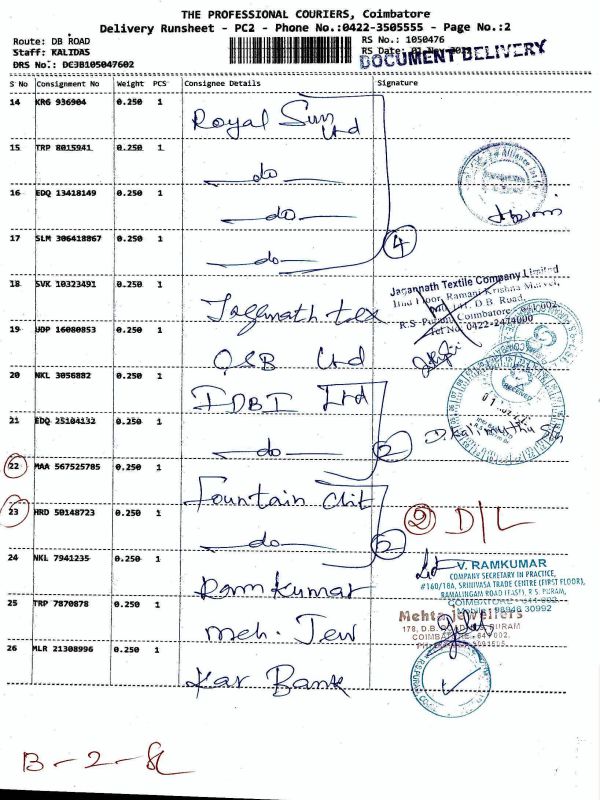 THE PROFESSIONAL COURIERS, Coimbatore
Delivery Runsheet - PC2 - Phone No.:0422-3505555 - Page No.:2
Route: DB ROAD
Staff: KALIDAS
DRS No.: DC3B105047602
RS No.: 1050476
RS Date:
DOCUMENT DELIVERY
S No Consignment No Weight PCS Consignee Details Signature
14 KRG 936904 0.250 1 Royal Sun Ltd
15 TRP 8015941 0.250 1 do
16 EDQ 13418149 0.250 1 do
17 SLM 306418867 0.250 1 do 4
18 SVK 10323491 0.250 1 Jagannath tex
Jagannath Textile Company Limited
IInd Floor, Ramani Krishna
D.B. Road,
Coimbatore
Tel No: 0422-2474000
19 UDP 16080853 0.250 1 Ltd
20 NKL 3056882 0.250 1 IDBI Ltd
21 EDQ 25104132 0.250 1 do 2
22 MAA 567525785 0.250 1 Fountain Chit
23 HRD 50148723 0.250 1 do 2
2 D/L
24 NKL 7941235 1 Ramkumar
0.250
V. RAMKUMAR
COMPANY SECRETARY IN PRACTICE,
#160/18A, SRINIVASA TRADE CENTRE (FIRST FLOOR),
RAMALINGAM ROAD (EAST), R.S. PURAM,
COIMBATORE - 641 002.
Mobile: 98946 30992
25 TRP 7870878 0.250 1 Meh. Jew
Mehta Jewellers
178, D.B. ROAD, R.S. PURAM
COIMBATORE - 641 002.
26 MLR 21308996 0.250 1 Kar Bank
B - 2 - SL